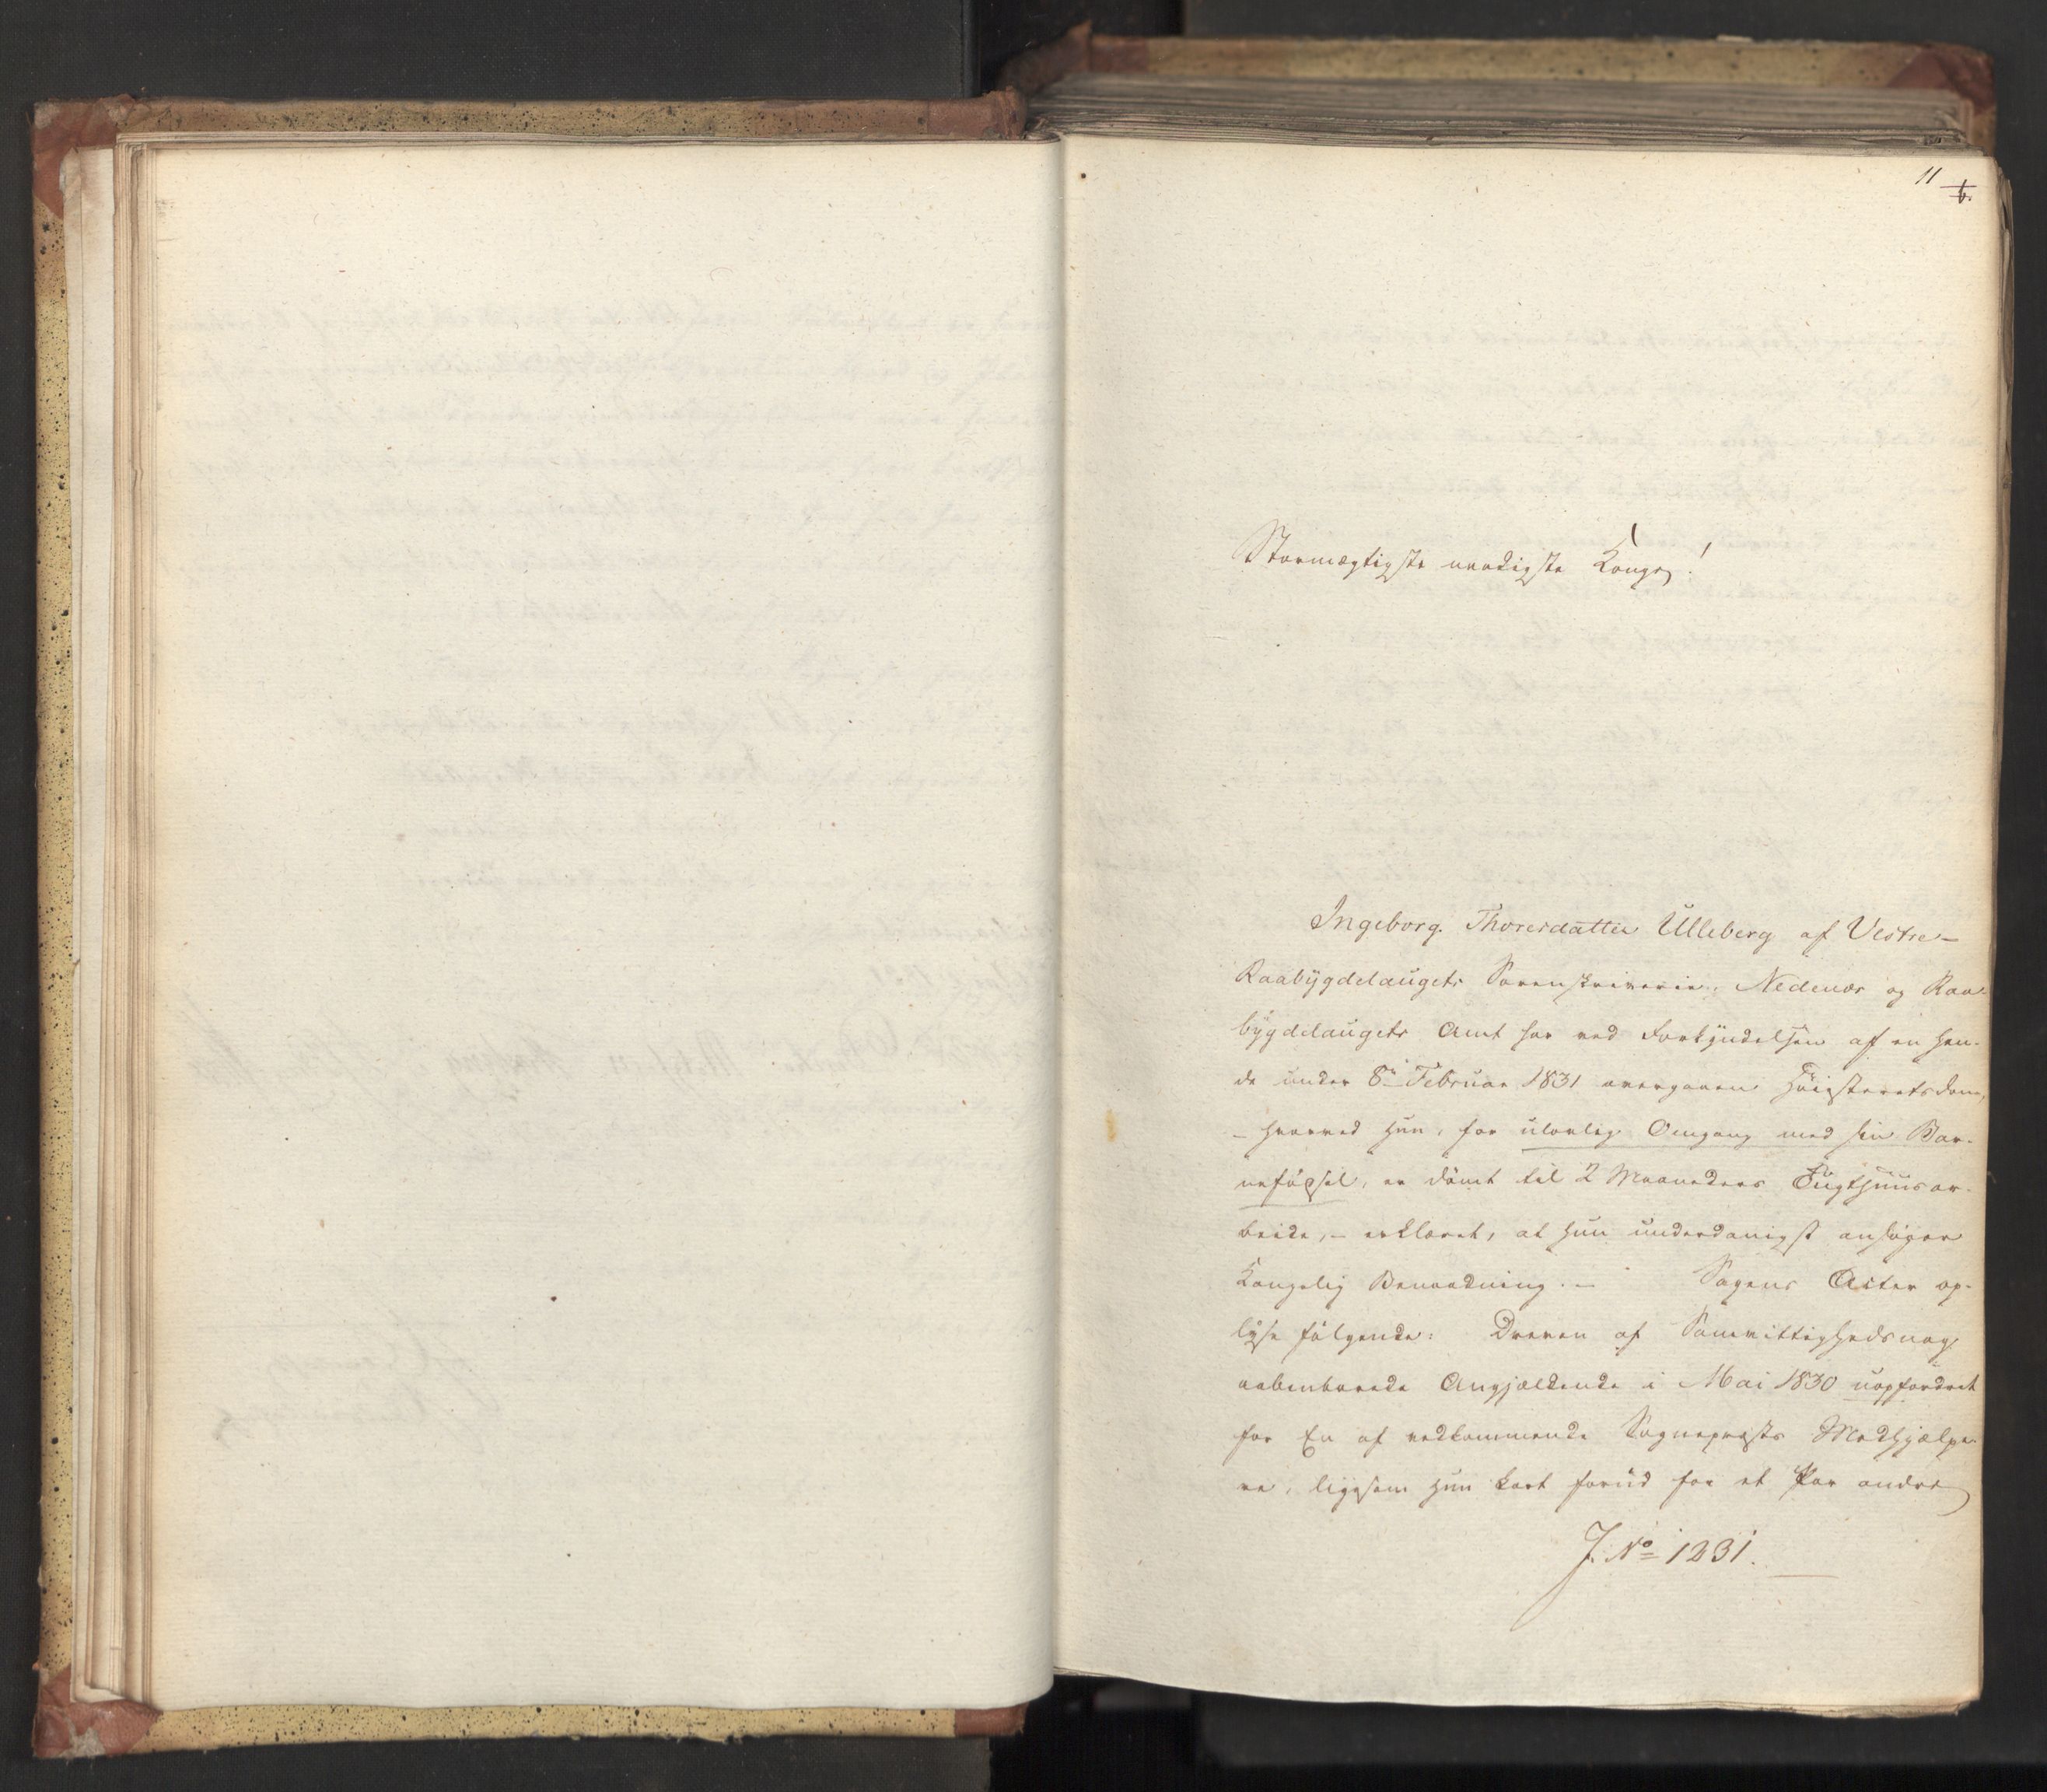 11 6.
Stormægtigste naadigste Konge!
Ingeborg Thoresdatter Ulleberg af Vestre-
Raabygdelaugets Sorenskriverie, Nedenæs og Raa-
bygdelaugets Amt har ved Forkyndelsen af en hen-
de under 8de Februar 1831 overgaaen Høiesteretsdom,
- hvorved hun, for ulovlig Omgang med sin Bar-
nefødsel, er dømt til 2 Maaneders Tugthuusar-
beide, - erklæret, at hun underdanigst ansøger
Kongelig Benaadning. - Sagens Acter op-
lyse følgende: Dreven af Samvittighedsnag
aabenbarede Angjældende i Mai 1830 uopfordret
for En af vedkommende Sognepræsts Medhjælpe-
re, ligesom hun kort forud for et Par andre
J. No 1231.